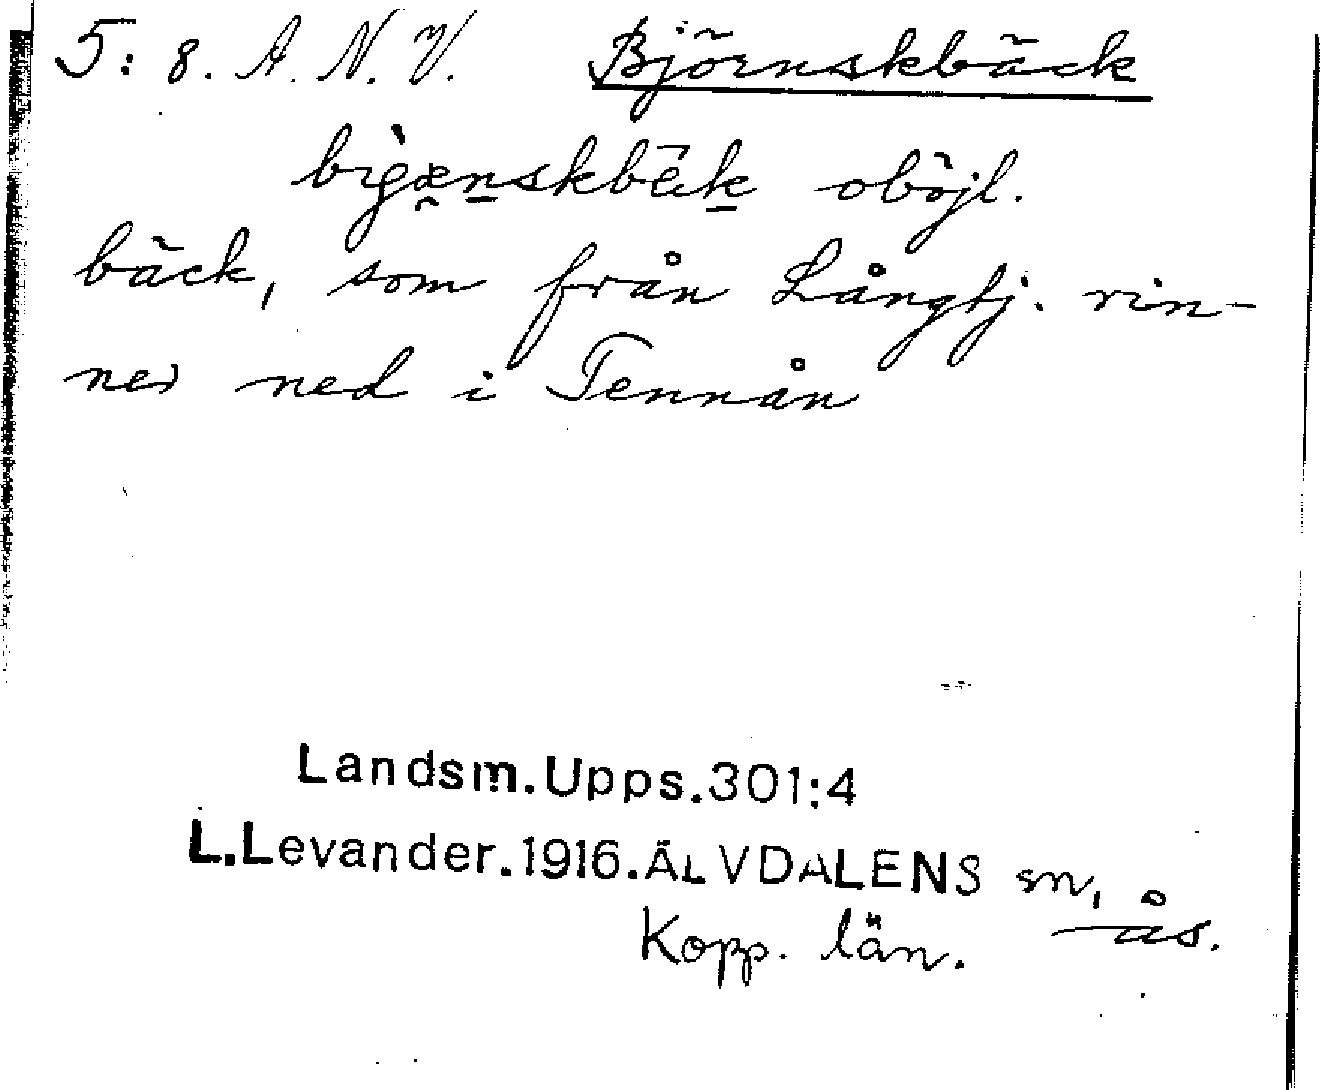 5: 8. A. N. V. Björnskbäck
oböjl.
bäck, som från Långtj. rin-
ner ned i Tennån
Landsm.Upps.301:4
L.Levander.1916.ÄLVDALENS sn,
Kopp. län. Ås.